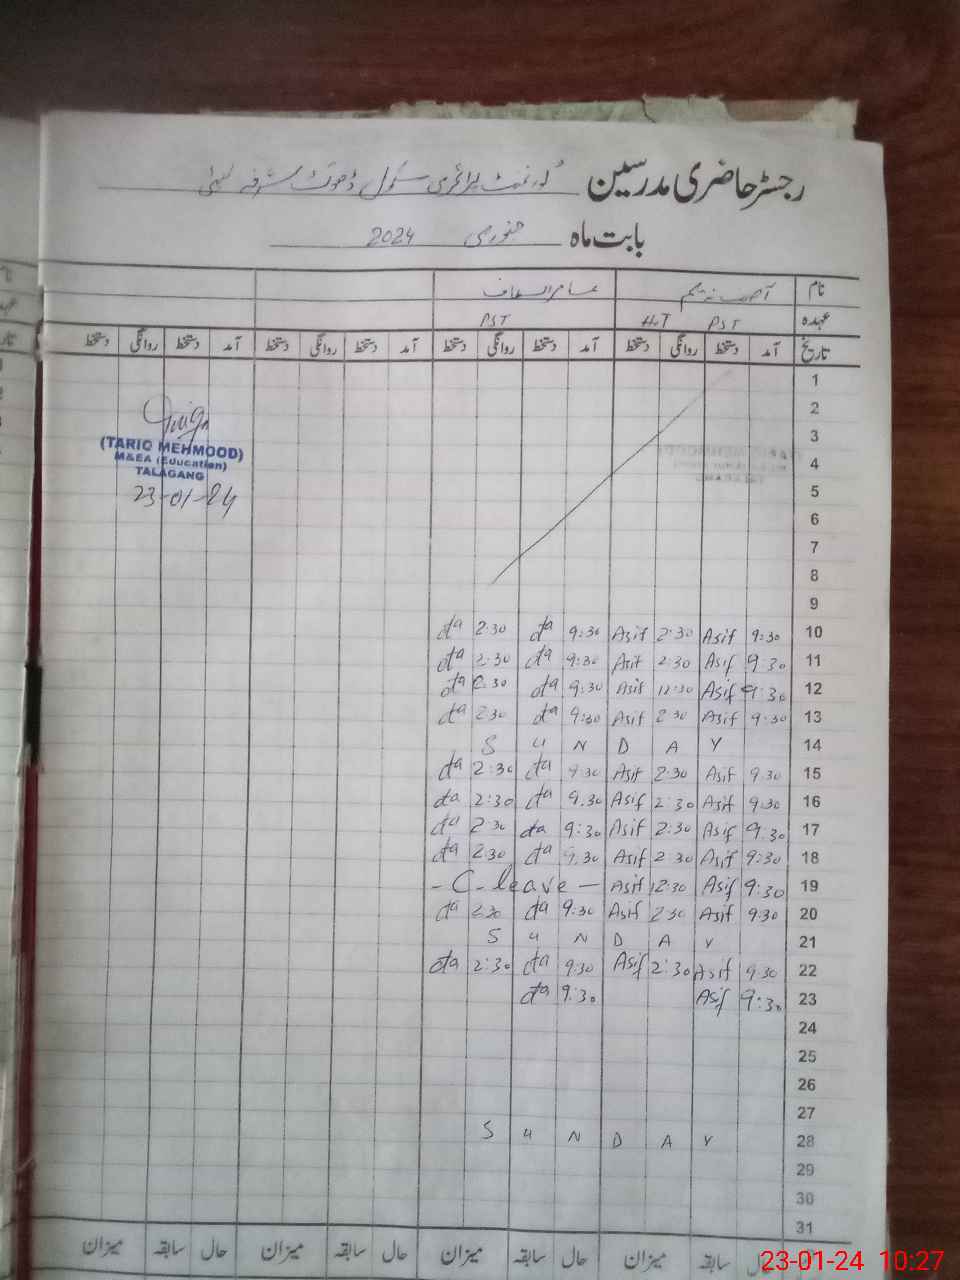 رجسٹر حاضری مدرسین گورنمنٹ پرائمری سکول ڈھوک
بابت ماہ جنوری 2024
نام آصف ندیم عامر الطاف
عہدہ PST HT PST
تاریخ آمد دستخط روانگی دستخط آمد دستخط روانگی دستخط آمد دستخط روانگی دستخط آمد دستخط روانگی دستخط
1
2
3
4
5
6
7
8
9
10 9:30 Asif 2:30 Asif 9:30 2:30
11 9:30 Asif 2:30 Asif 9:30 2:30
12 9:30 Asif 12:30 Asif 9:30
13 9:30 Asif 2:30 Asif 9:30 2:30
14 S U N D A Y
15 9:30 Asif 2:30 Asif 9:30 2:30
16 9:30 Asif 2:30 Asif 9:30 2:30
17 9:30 Asif 2:30 Asif 9:30 2:30
18 9:30 Asif 2:30 Asif 9:30 2:30
19 9:30 Asif 12:30 Asif - C-leave -
20 9:30 Asif 2:30 Asif 9:30 2:30
21 S U N D A Y
22 9:30 Asif 2:30 Asif 9:30 2:30
23 9:30 Asif 9:30
24
25
26
27
28 S U N D A Y
29
30
31
حال سابقہ میزان حال سابقہ میزان حال سابقہ میزان
(TARIQ MEHMOOD)
M&EA (Education)
TALAGANG
23-01-24
23-01-24 10:27